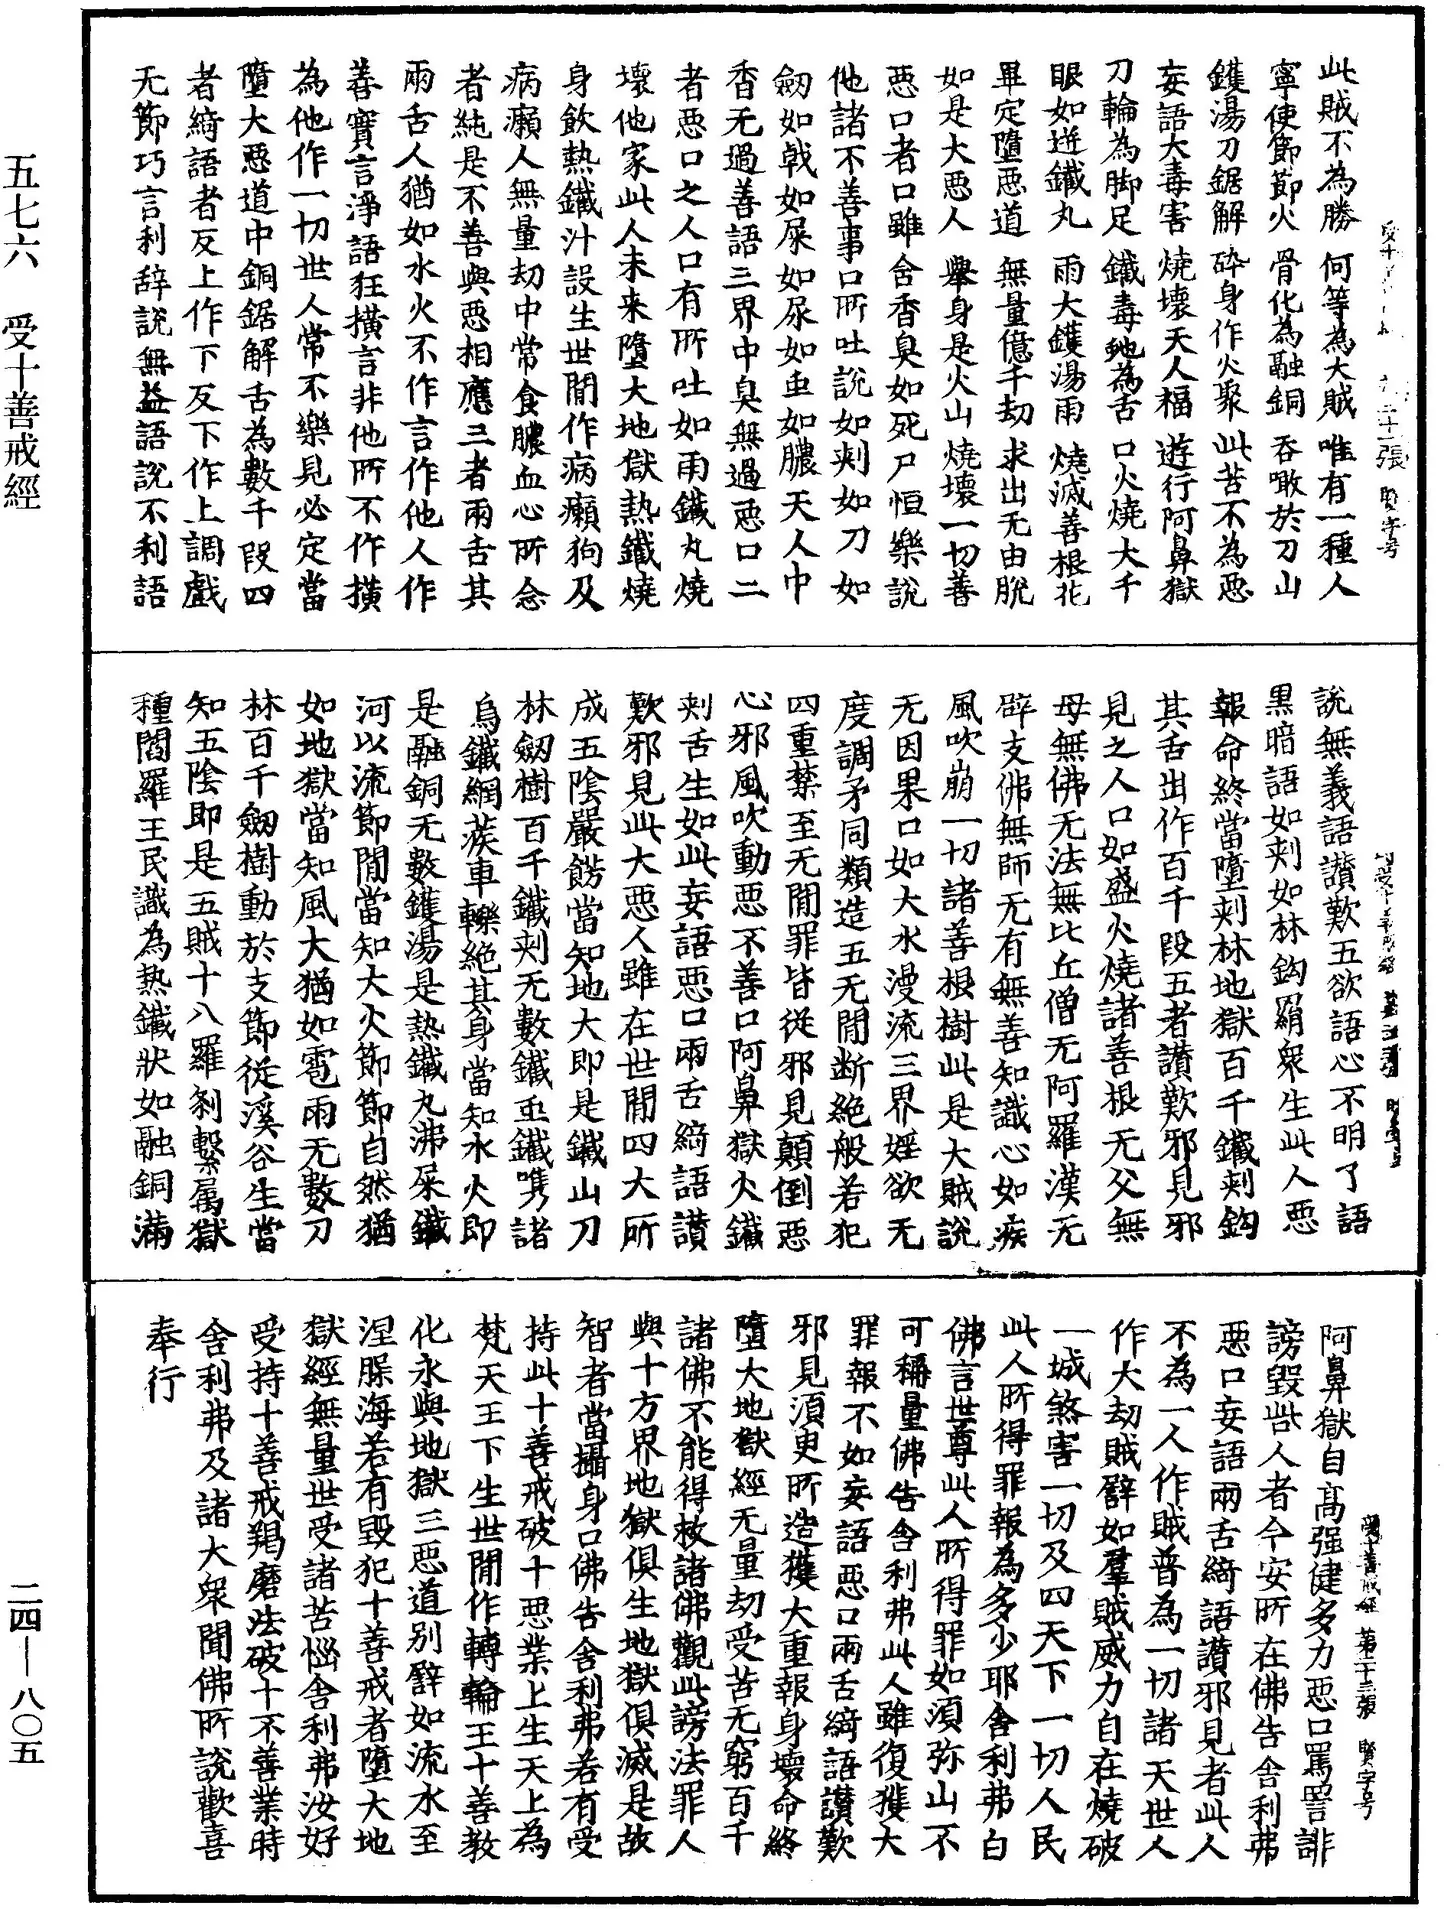 此賊不為勝 何等為大賊 唯有一種人
寧使節節火 骨化為融銅 吞噉於刀山
鑊湯刀鋸解 碎身作火聚 此苦不為惡
妄語大毒害 燒壞天人福 遊行阿鼻獄
刀輪為脚足 鐵毒虵為舌 口火燒大千
眼如迸鐵丸 雨大鑊湯雨 燒滅善根花
畢定墮惡道 無量億千劫 求出无由脫
如是大惡人 舉身是火山 燒壞一切善
惡口者口雖含香香臭如死尸恒樂說
他諸不善事口所吐說如刾如刀如
劒如戟如屎如尿如虫如膿天人中
香无過善語三界中臭無過惡口二
者惡口之人口有所吐如雨鐵丸燒
壞他家此人未来墮大地獄熱鐵燒
身飲熱鐵汁設生世間作病癩狗及
病癩人無量劫中常食膿血心所念
者純是不善與惡相應三者兩舌其
兩舌人猶如水火不作言作他人作
善實言淨語狂橫言非他所不作橫
為他作一切世人常不樂見必定當
墮大惡道中銅鋸解舌為數千段四
者綺語者反上作下反下作上調戲
无節巧言利辞說無益語說不利語
說無義語讃歎五欲語心不明了語
黑暗語如刾如林鈎羂衆生此人惡
報命終當墮刾林地獄百千鐵刾鈎
其舌出作百千段五者讃歎邪見邪
見之人口如盛火燒諸善根无父無
母無佛无法無比丘僧无阿羅漢无
辟支佛無師无有無善知識心如疾
風吹崩一切諸善根樹此是大賊說
无因果口如大水漫流三界婬欲无
度調矛同類造五无間断絕般若犯
四重禁至无間罪皆從邪見顛倒惡
心邪風吹動惡不善口阿鼻獄火鐵
刾舌生如此妄語惡口兩舌綺語讃
歎邪見此大惡人雖在世間四大所
成五陰嚴餝當知地大即是鐵山刀
林劒樹百千鐵刾无數鐵虫鐵㗨諸
烏鐵網蒺車轢絕其身當知水火即
是融銅无數鑊湯是熱鐵丸沸屎鐵
河以流節間當知大火節節自然猶
如地獄當知風大猶如雹雨无數刀
林百千劒樹動於支節從溪谷生當
知五陰即是五賊十八羅剎繫属獄
種閻羅王民識為热鐵狀如融銅滿
阿鼻獄自高强健多力惡口罵詈誹
謗毀呰人者今安所在佛告舍利弗
惡口妄語兩舌綺語讃邪見者此人
不為一人作賊普為一切諸天世人
作大劫賊譬如羣賊威力自在燒破
一城煞害一切及四天下一切人民
此人所得罪報為多少耶舍利弗白
佛言世尊此人所得罪如須弥山不
可稱量佛告舍利弗此人雖復獲大
罪報不如妄語惡口兩舌綺語讃歎
邪見須臾所造獲大重報身壞命終
墮大地獄經无量劫受苦无窮百千
諸佛不能得救諸佛觀此謗法罪人
與十方界地獄俱生地獄俱滅是故
智者當攝身口佛告舍利弗若有受
持此十善戒破十惡業上生天上為
梵天王下生世間作轉輪王十善教
化永與地獄三惡道別譬如流水至
涅槃海若有毀犯十善戒者墮大地
獄經無量世受諸苦惱舍利弗汝好
受持十善戒羯磨法破十不善業時
舍利弗及諸大衆聞佛所說歡喜
奉行
受十善戒經 第二十三張 賢字号
五七六 受十善戒經
二四—八〇五